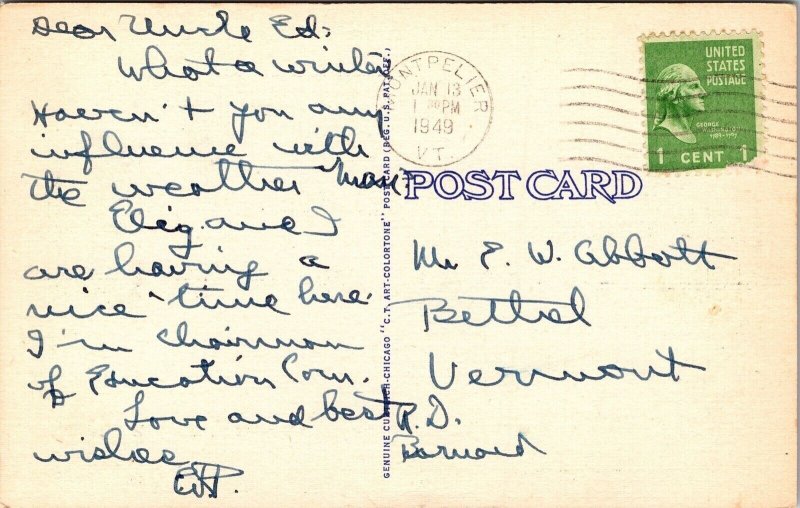 Dear Uncle Ed:
What a winter
Haven't you any
influence with
the weather man?
and I
are having a
nice time here.
I'm chairman
of Education Com.
Love and best
wishes
GENUINE CURTEICH-CHICAGO "C.T. ART-COLORTONE" POST CARD (REG. U.S. PAT. OFF.)
MONTPELIER
JAN 13
1 PM
1949
VT.
UNITED
STATES
POSTAGE
GEORGE
WASHINGTON
1789-1797
1 CENT 1
POST CARD
Mr. E. W. Abbott
Bethel
Vermont
R.D.
Barnard